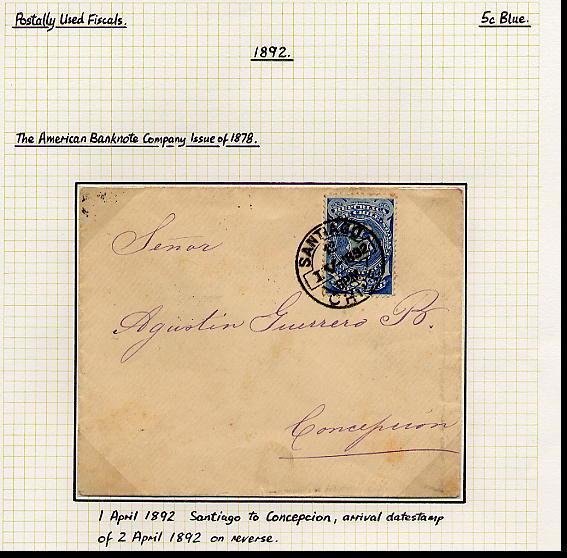 Postally Used Fiscals.
5c Blue.
1892.
The American Banknote Company Issue of 1878.
REPUBLICA
CHILE
SANTIAGO
1892
CHILE
Señor
Agustin Guerrero B.
Concepción
1 April 1892 Santiago to Concepcion, arrival datestamp
of 2 April 1892 on reverse.